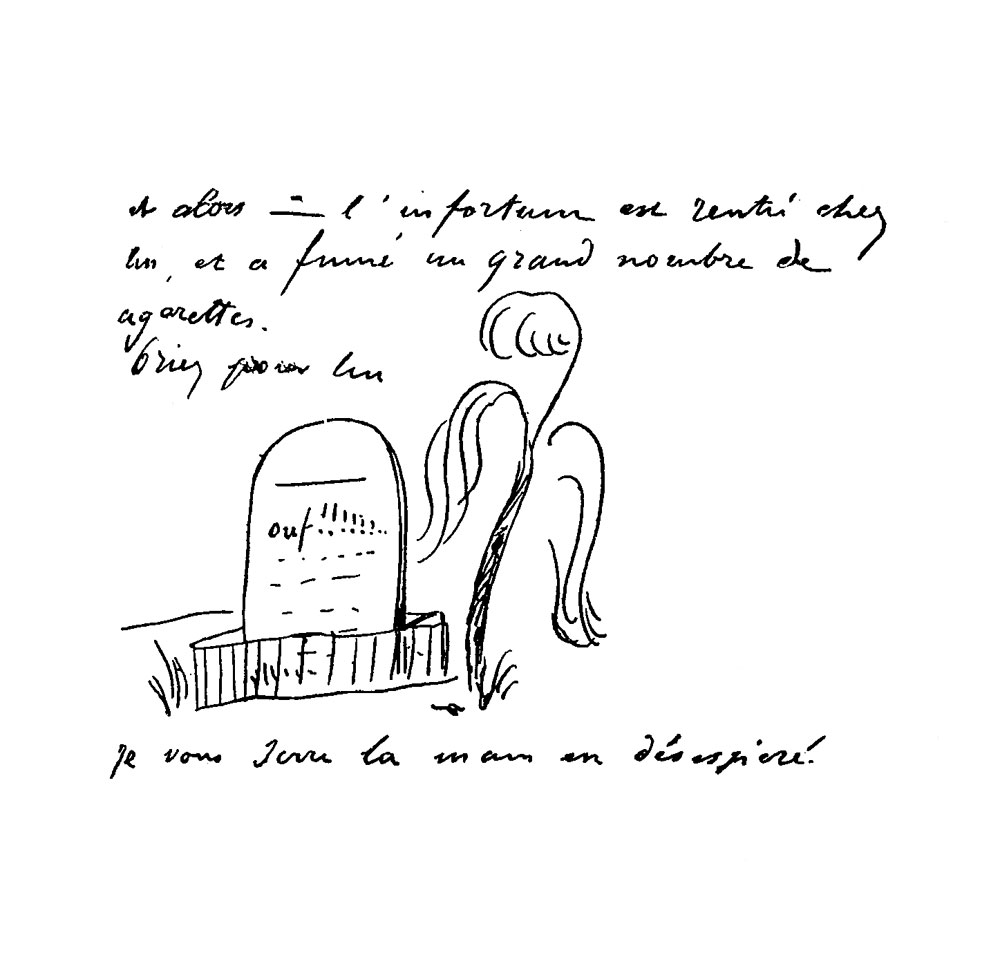 et alors — l'infortuné est rentré chez
lui, et a fumé un grand nombre de
cigarettes.
Priez pour lui
ouf!!!!!!!
Je vous serre la main en désespéré!